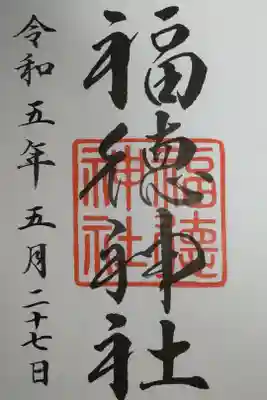 福徳神社
福徳
神社
令和五年五月二十七日